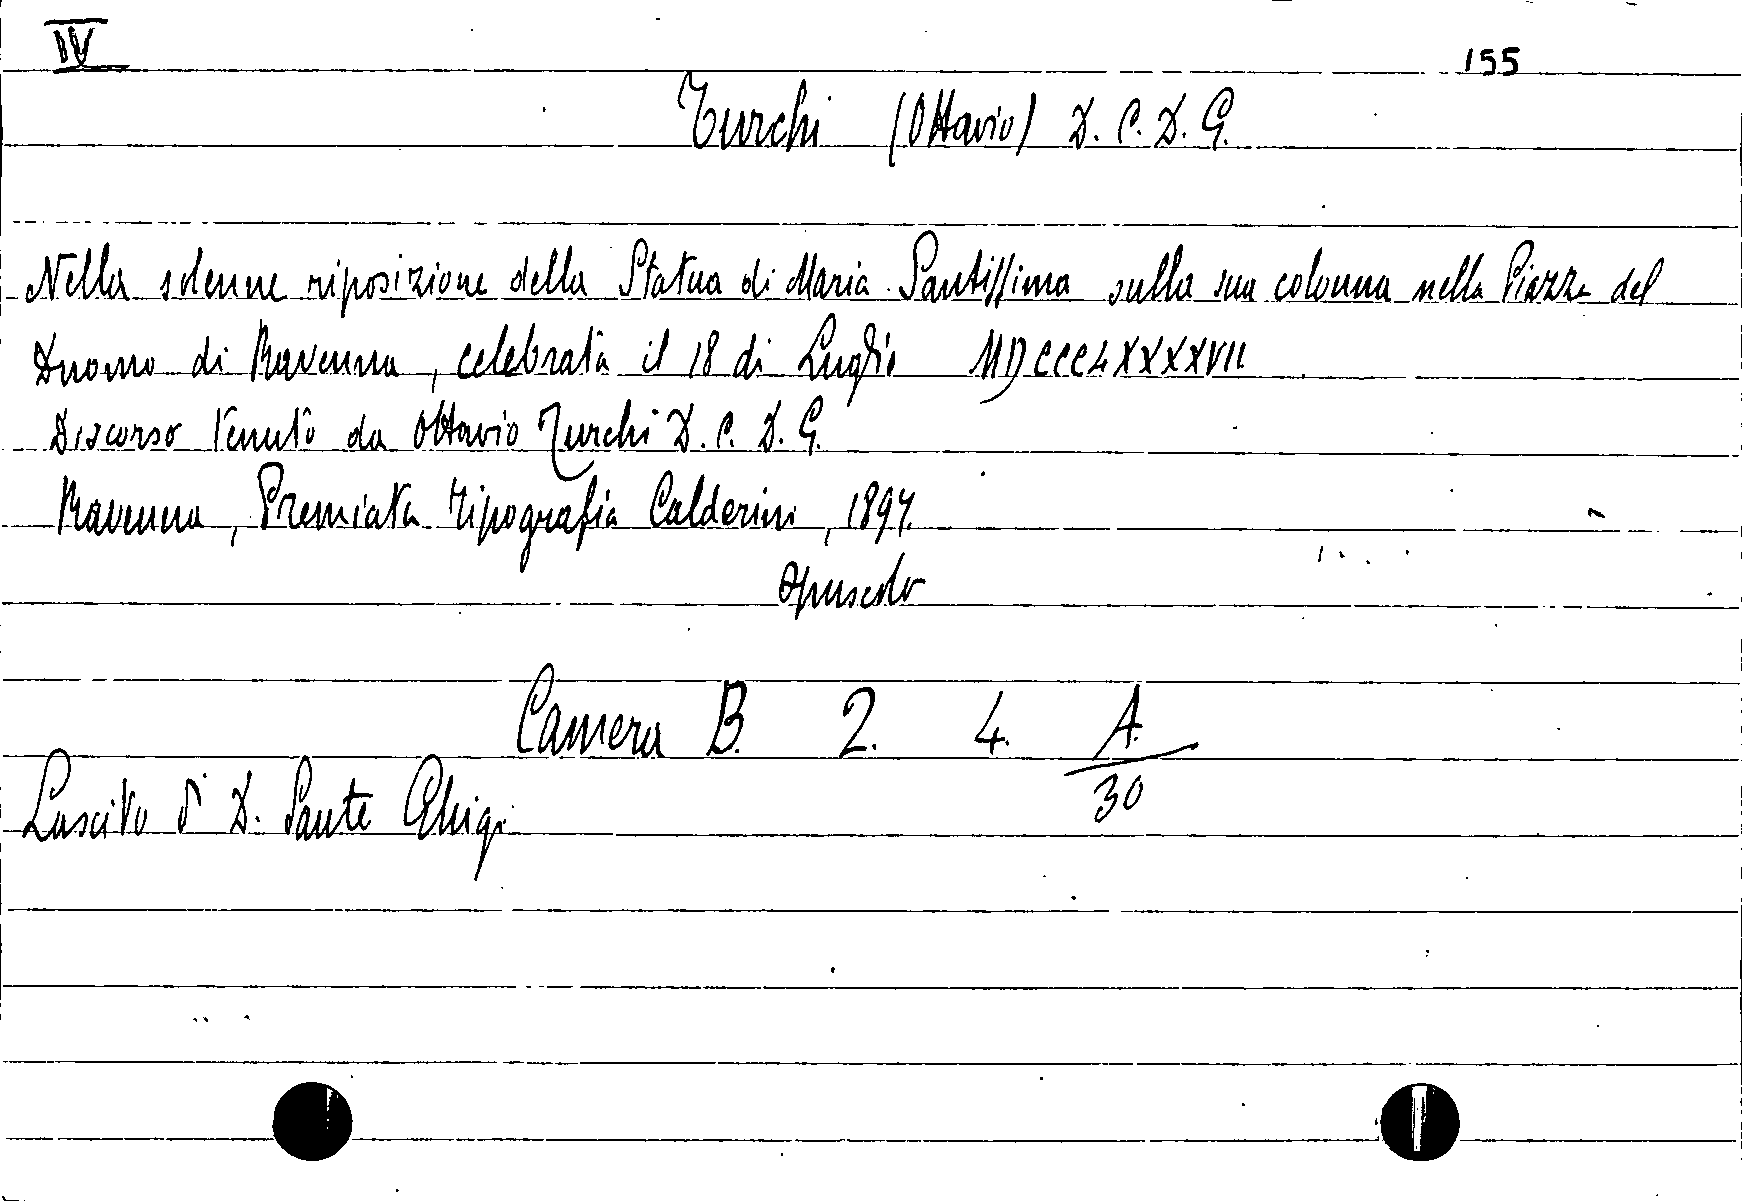 IV
155
Turchi (Ottavio) D. C. D. G.
Nella solenne riposizione della Statua di Maria Santissima sulla sua colonna nella Piazza del
Duomo di Ravenna, celebrata il 18 di Luglio MDCCCLXXXXVII
Discorso tenuto da Ottavio Turchi D. C. D. G.
Ravenna, Premiata Tipografia Calderini, 1897.
opuscolo
Camera B. 2. 4. A.
30
Lascito di D. Sante Ghigi